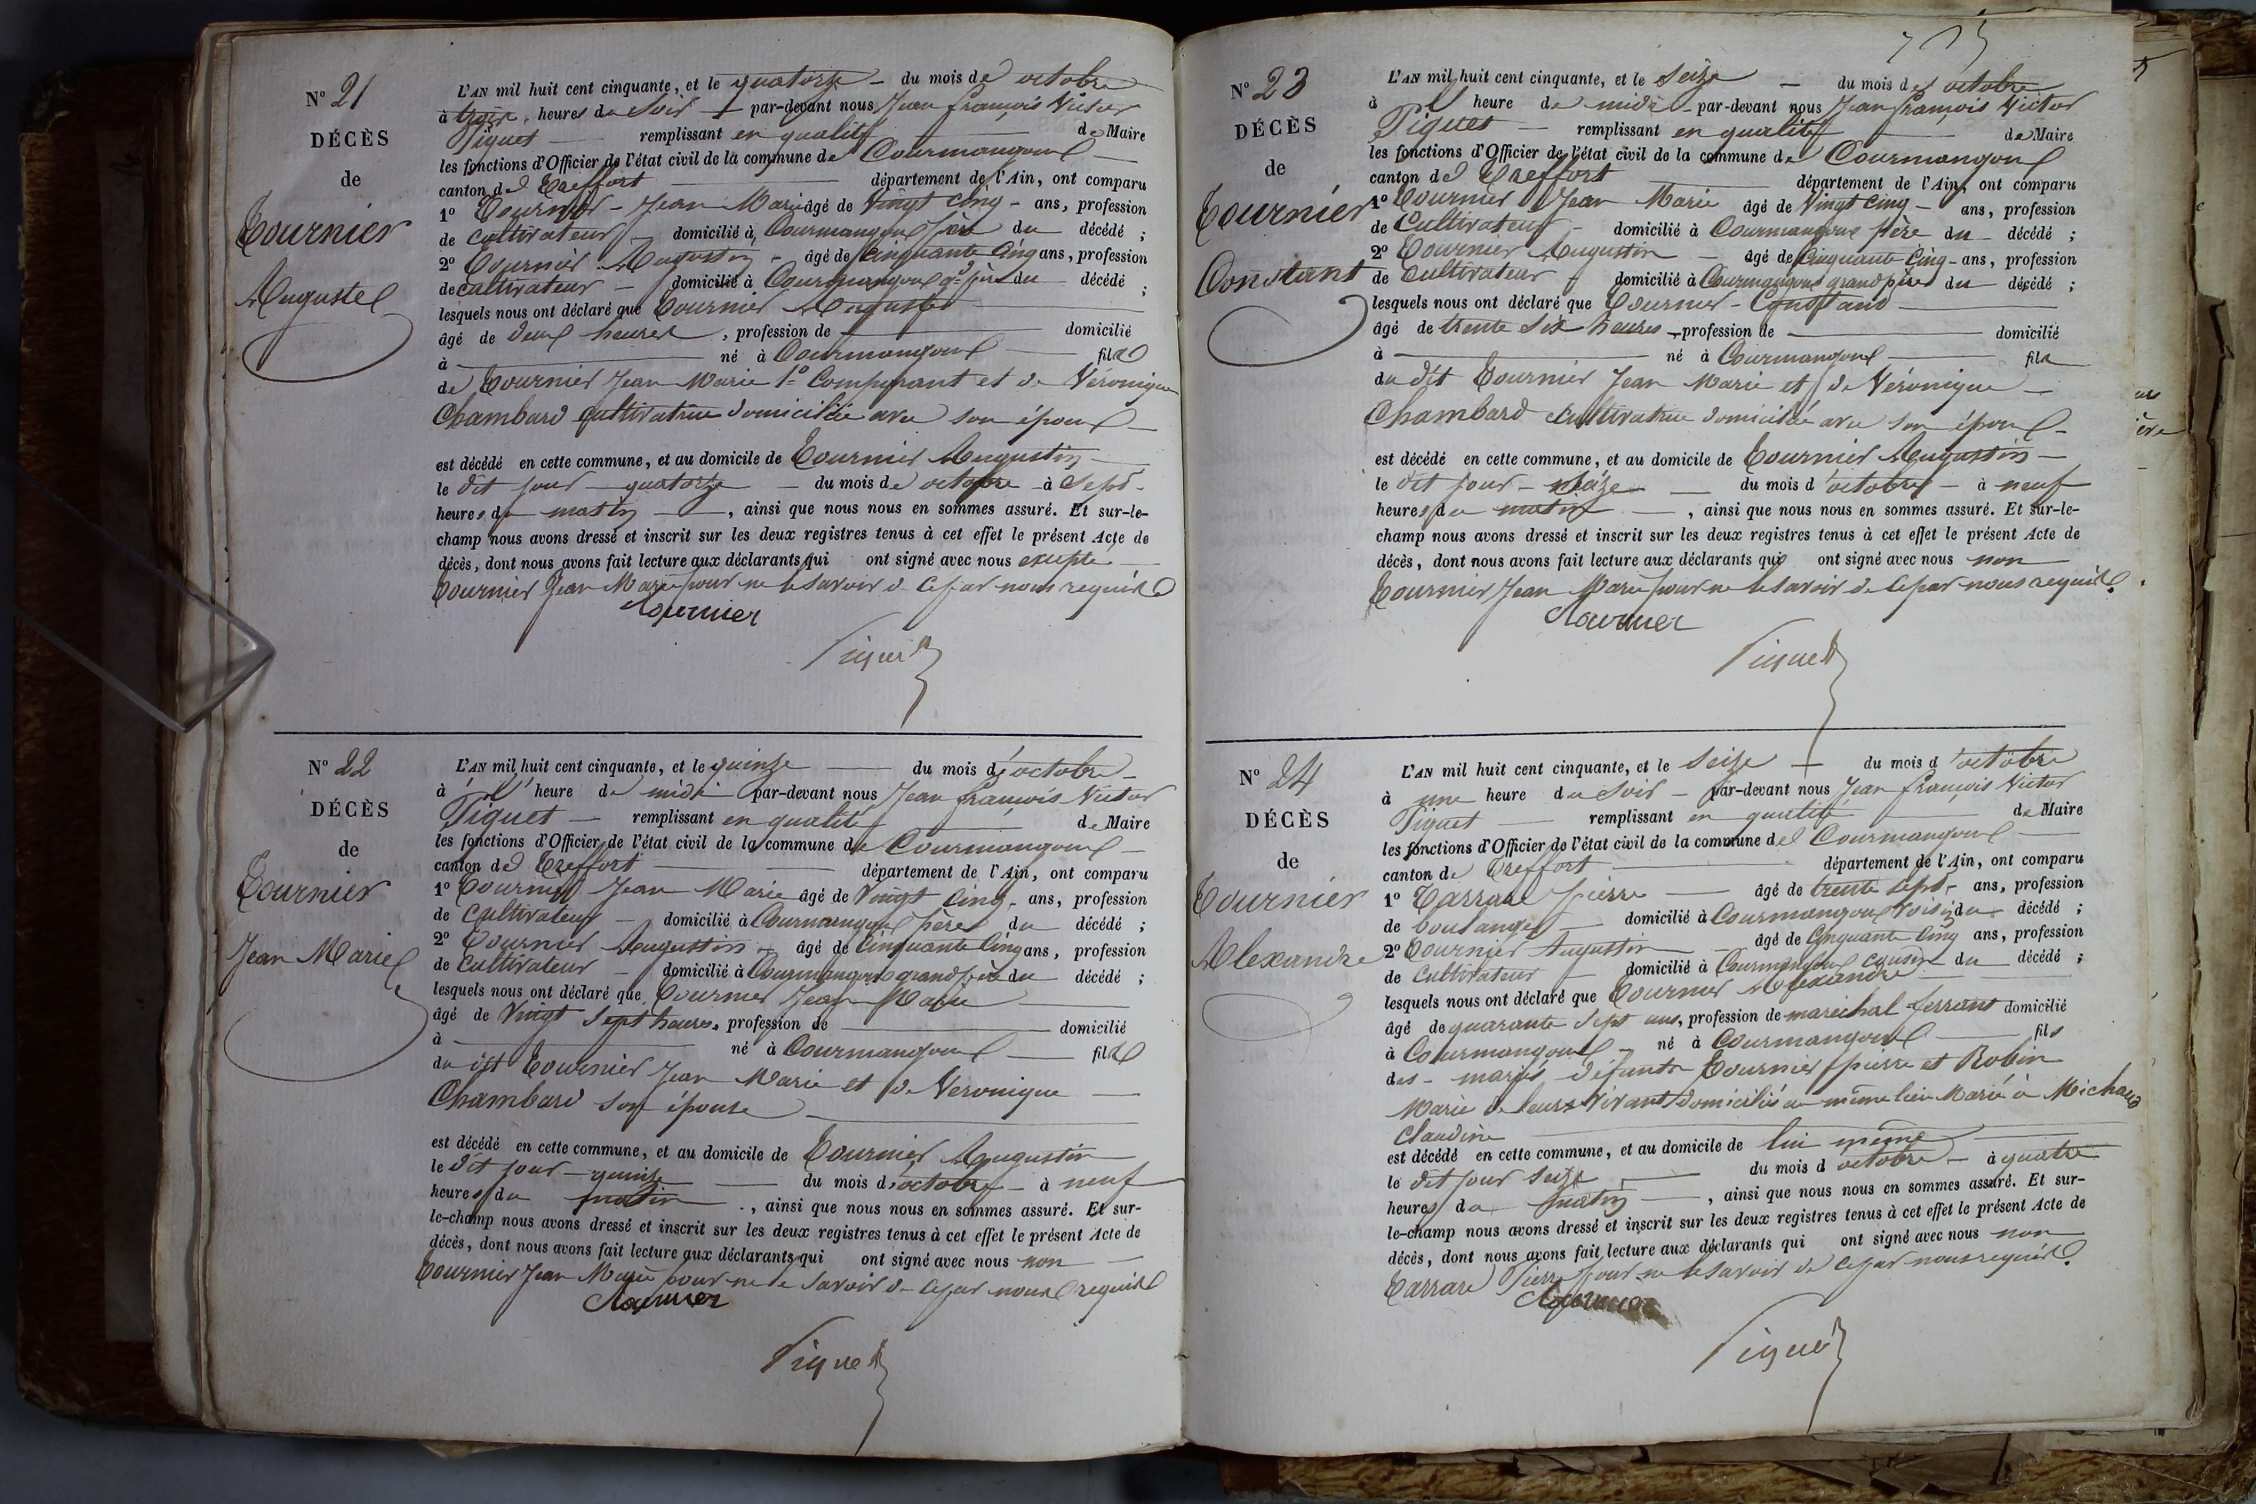 N° 21
DÉCÈS
de
Tournier
Auguste
L'AN mil huit cent cinquante, et le quatorze du mois de octobre
à trois heures du soir par-devant nous Jean françois Victor
Piquet remplissant en qualité de Maire
les fonctions d'Officier de l'état civil de la commune de Courmangoux
canton de Treffort département de l'Ain, ont comparu
1° Tournier Jean Marie âgé de Vingt cinq ans, profession
de cultivateur domicilié à Courmangoux père du décédé ;
2° Tournier Augustin âgé de cinquante cinq ans, profession
de cultivateur domicilié à Courmangoux gd père du décédé ;
lesquels nous ont déclaré que Tournier Auguste
âgé de deux heures, profession de domicilié
à né à Courmangoux fils
de Tournier Jean Marie 1er Comparant et de Véronique
Chambard cultivatrice domiciliée avec son époux
est décédé en cette commune, et au domicile de Tournier Augustin
le dit jour quatorze du mois de octobre à Sept
heures du matin, ainsi que nous nous en sommes assuré. Et sur-le-
champ nous avons dressé et inscrit sur les deux registres tenus à cet effet le présent Acte de
décès, dont nous avons fait lecture aux déclarants qui ont signé avec nous excepté
Tournier Jean Marie pour ne le savoir de ce par nous requis
Tournier
Piquet
N° 22
DÉCÈS
de
Tournier
Jean Marie
L'AN mil huit cent cinquante, et le quinze du mois d'octobre
à l'heure de midi par-devant nous Jean françois Victor
Piquet remplissant en qualité de Maire
les fonctions d'Officier de l'état civil de la commune de Courmangoux
canton de Treffort département de l'Ain, ont comparu
1° Tournier Jean Marie âgé de Vingt cinq ans, profession
de cultivateur domicilié à Courmangoux père du décédé ;
2° Tournier Augustin âgé de cinquante cinq ans, profession
de cultivateur domicilié à Courmangoux grand père du décédé ;
lesquels nous ont déclaré que Tournier Jean Marie
âgé de Vingt Sept heures, profession de domicilié
à né à Courmangoux fils
du dit Tournier Jean Marie et de Veronique
Chambard son épouse
est décédé en cette commune, et au domicile de Tournier Augustin
le dit jour quinze du mois d'octobre à neuf
heures du matin, ainsi que nous nous en sommes assuré. Et sur-
le-champ nous avons dressé et inscrit sur les deux registres tenus à cet effet le présent Acte de
décès, dont nous avons fait lecture aux déclarants qui ont signé avec nous non
Tournier Jean Marie pour ne le savoir de ce par nous requis
Tournier
Piquet
N° 23
DÉCÈS
de
Tournier
Constant
L'AN mil huit cent cinquante, et le Seize du mois d'octobre
à l'heure de midi par-devant nous Jean françois Victor
Piquet remplissant en qualité de Maire
les fonctions d'Officier de l'état civil de la commune de Courmangoux
canton de Treffort département de l'Ain, ont comparu
1° Tournier Jean Marie âgé de Vingt cinq ans, profession
de Cultivateur domicilié à Courmangoux père du décédé ;
2° Tournier Augustin âgé de Cinquante Cinq ans, profession
de Cultivateur domicilié à Courmangoux grand père du décédé ;
lesquels nous ont déclaré que Tournier Constant
âgé de trente Six heures, profession de domicilié
à né à Courmangoux fils
du dit Tournier Jean Marie et de Véronique
Chambard Cultivatrice domiciliée avec son époux
est décédé en cette commune, et au domicile de Tournier Augustin
le dit jour seize du mois d'octobre à neuf
heures du matin, ainsi que nous nous en sommes assuré. Et sur-le-
champ nous avons dressé et inscrit sur les deux registres tenus à cet effet le présent Acte de
décès, dont nous avons fait lecture aux déclarants qui ont signé avec nous non
Tournier Jean Marie pour ne le savoir de ce par nous requis.
Tournier
Piquet
N° 24
DÉCÈS
de
Tournier
Alexandre
L'AN mil huit cent cinquante, et le Seize du mois d'octobre
à une heure du soir par-devant nous Jean françois Victor
Piquet remplissant en qualité de Maire
les fonctions d'Officier de l'état civil de la commune de Courmangoux
canton de Treffort département de l'Ain, ont comparu
1° Carrare pierre âgé de trente sept ans, profession
de boulanger domicilié à Courmangoux Voisin du décédé ;
2° Tournier Augustin âgé de Cinquante Cinq ans, profession
de Cultivateur domicilié à Courmangoux cousin du décédé ;
lesquels nous ont déclaré que Tournier Alexandre
âgé de quarante Sept ans, profession de maréchal ferrant domicilié
à Courmangoux né à Courmangoux fils
des mariés défunts Tournier pierre et Robin
Marie de leurs Vivants domiciliés au même lieu Marié à Michaud
Claudine
est décédé en cette commune, et au domicile de lui même
le dit jour seize du mois d'octobre à quatre
heures du matin, ainsi que nous nous en sommes assuré. Et sur-
le-champ nous avons dressé et inscrit sur les deux registres tenus à cet effet le présent Acte de
décès, dont nous avons fait lecture aux déclarants qui ont signé avec nous non
Carrare Pierre pour ne le savoir de ce par nous requis.
Tournier
Piquet